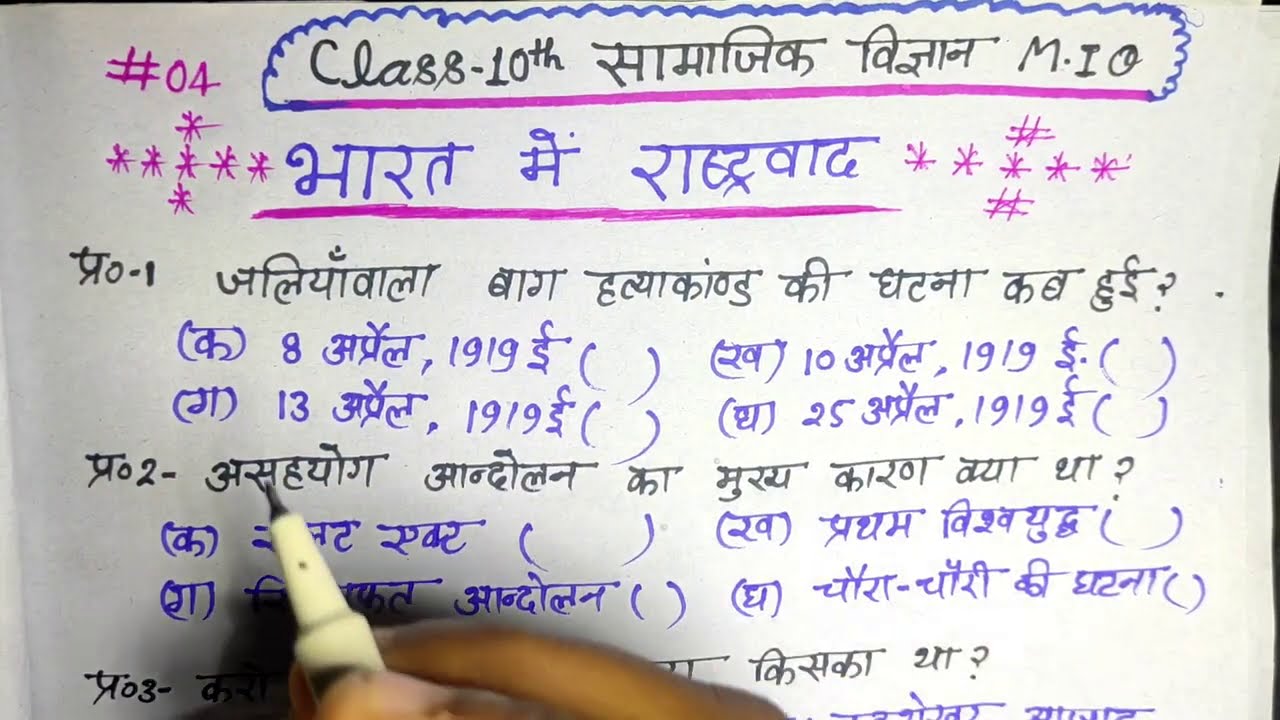 #04 Class-10th सामाजिक विज्ञान M.I.Q
भारत में राष्ट्रवाद
प्र०-1 जलियाँवाला बाग हत्याकांण्ड की घटना कब हुई?
(क) 8 अप्रैल, 1919 ई ( ) (ख) 10 अप्रैल, 1919 ई. ( )
(ग) 13 अप्रैल, 1919 ई ( ) (घ) २5 अप्रैल, 1919 ई ( )
प्र०२- असहयोग आन्दोलन का मुख्य कारण क्या था?
(क) एक्ट ( ) (ख) प्रथम विश्वयुद्ध ( )
(ग) आन्दोलन ( ) (घ) चौरा-चौरी की घटना ( )
प्र०3- करो किसका था?